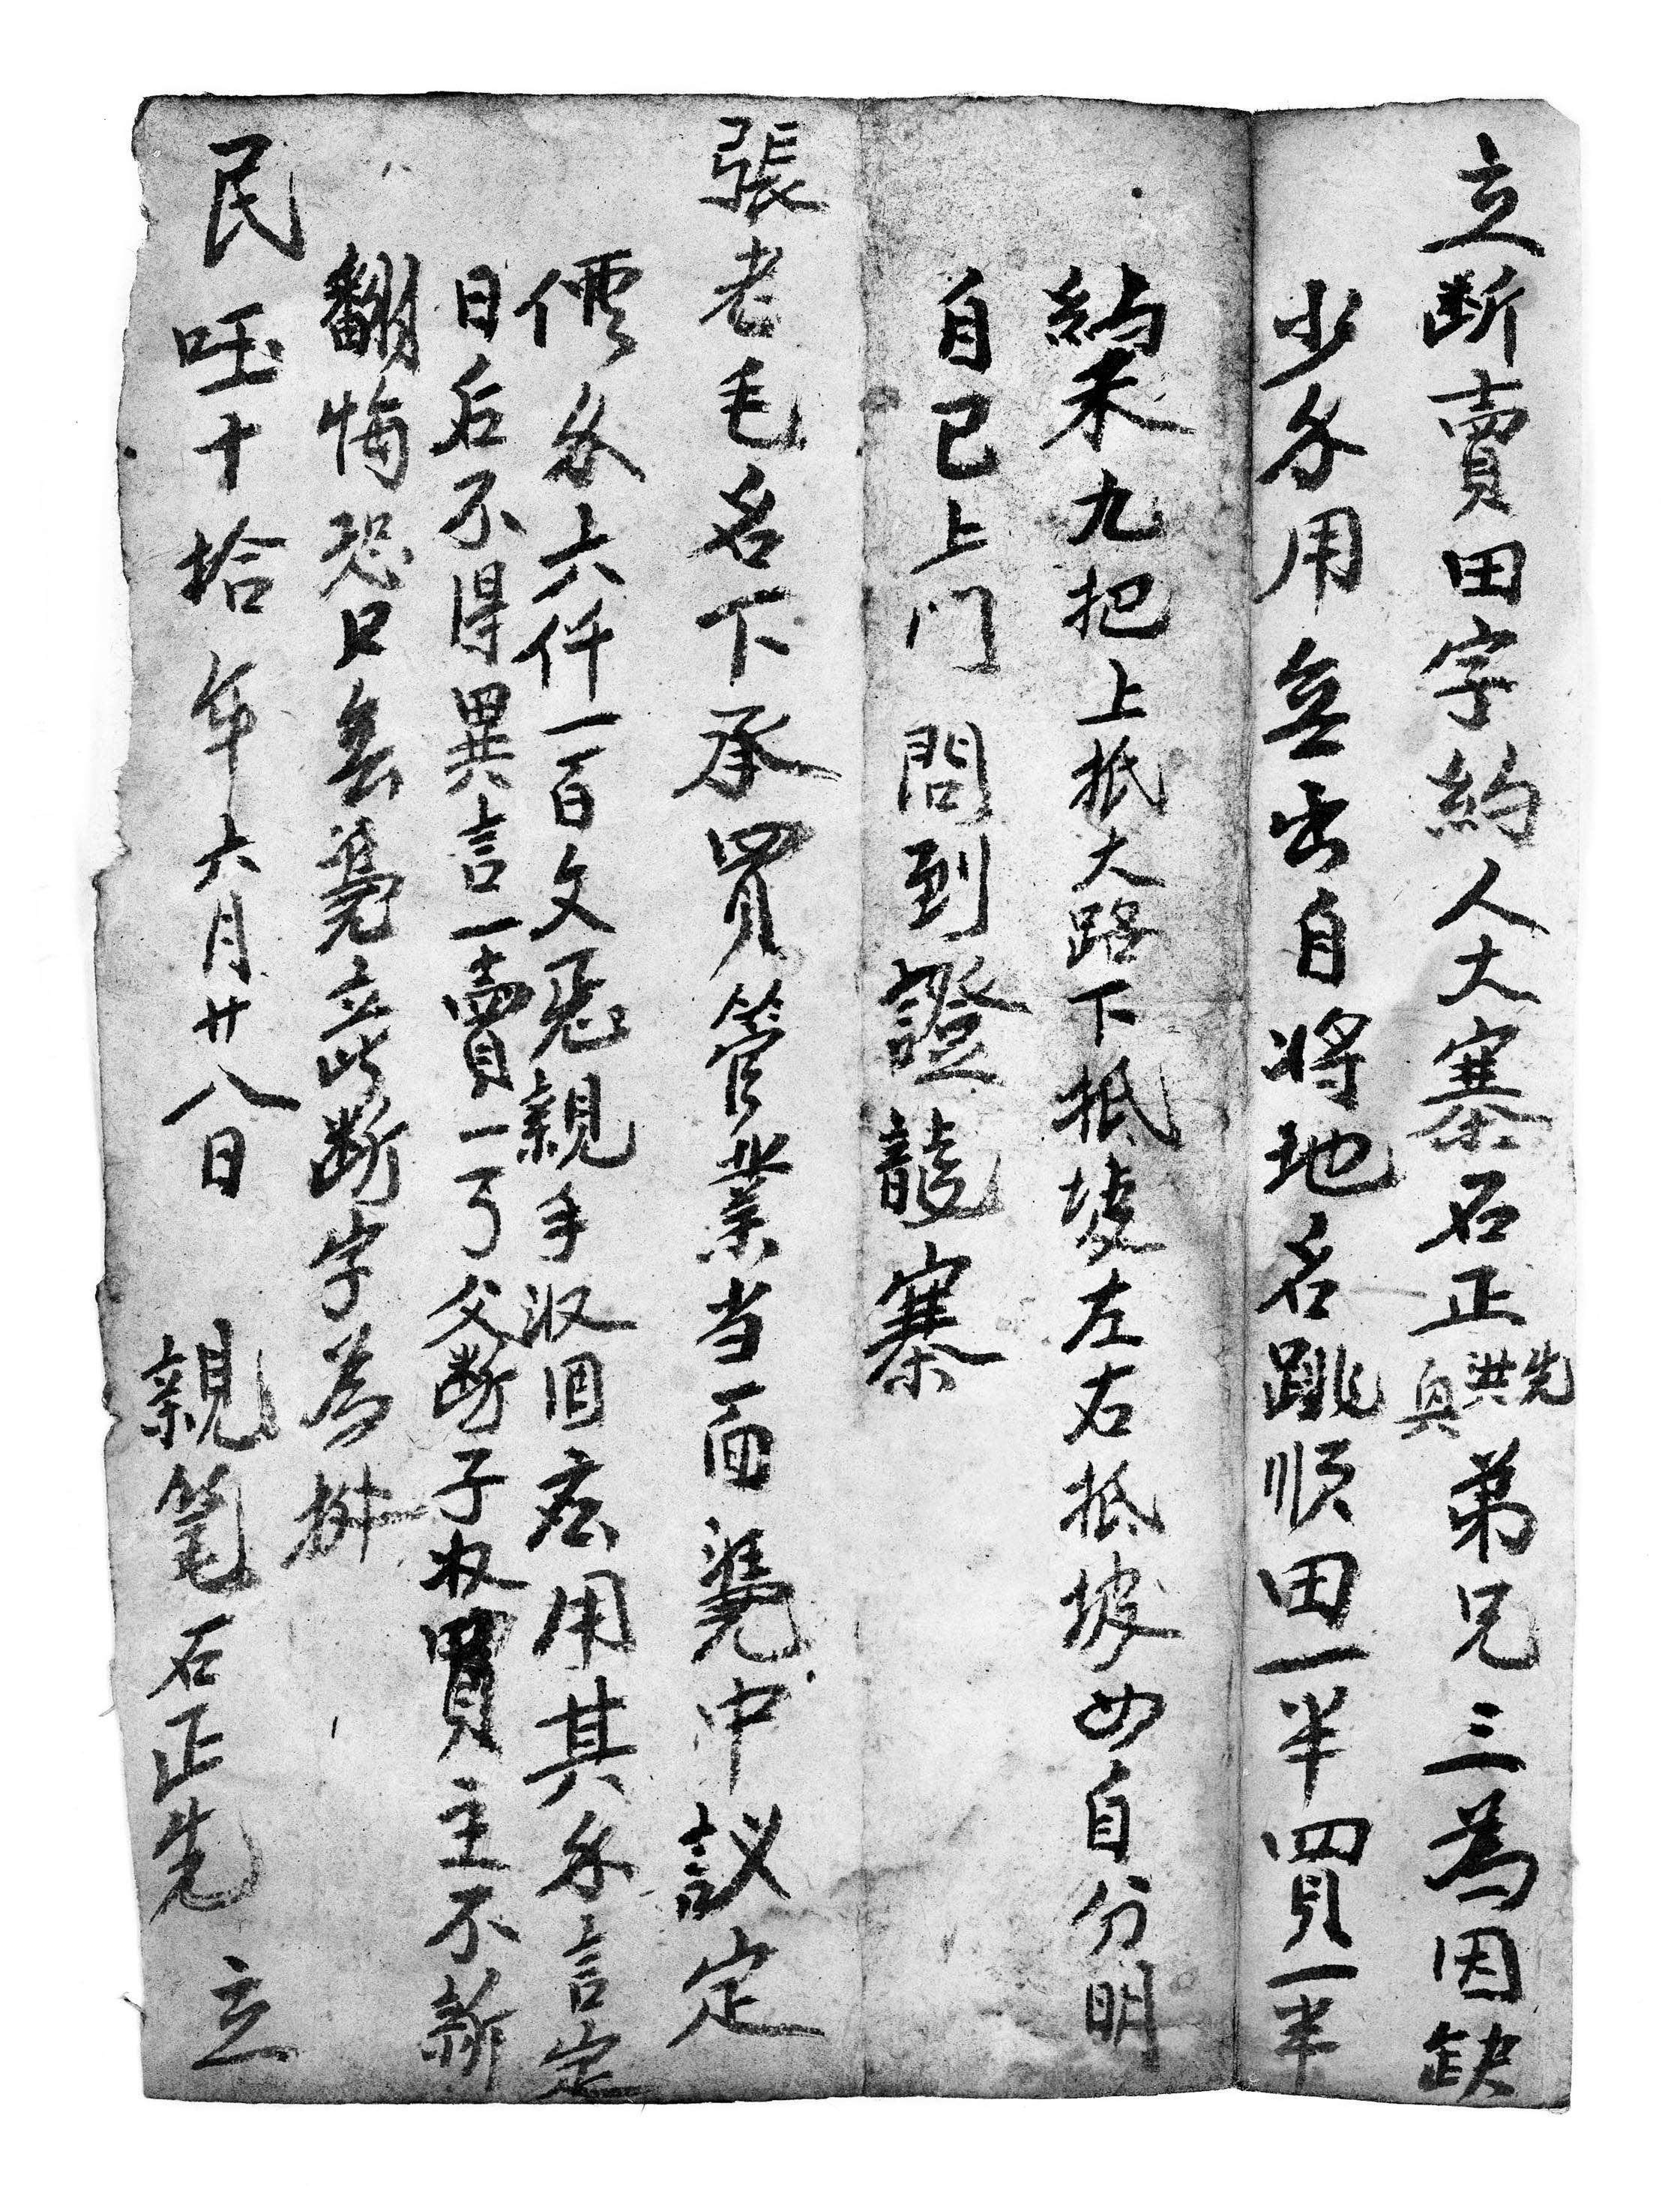 立断賣田字約人大寨石正先洪興弟兄三為因缺
少艮用無出自將地名跳順田一半買一半
約禾九把上抵大路下抵坡左右抵坡四自分明
自己上门問到證龍寨
張老毛名下承買管業当面凴中議定
價艮六仟一百文恁親手収回応用其艮言定
日后不得異言一賣一了父断子收買主不薪
翻悔恐口無凴立此断字為㨿
民囯十拾年六月廿八日 親笔石正先 立